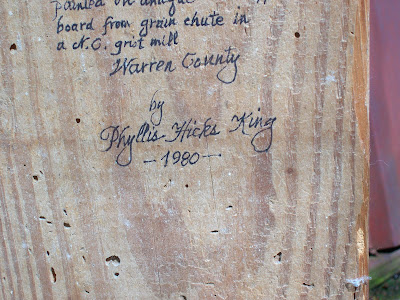 painted on antique
board from grain chute in
a N.C. grist mill
Warren County
by
Phyllis Hicks King
- 1980 -